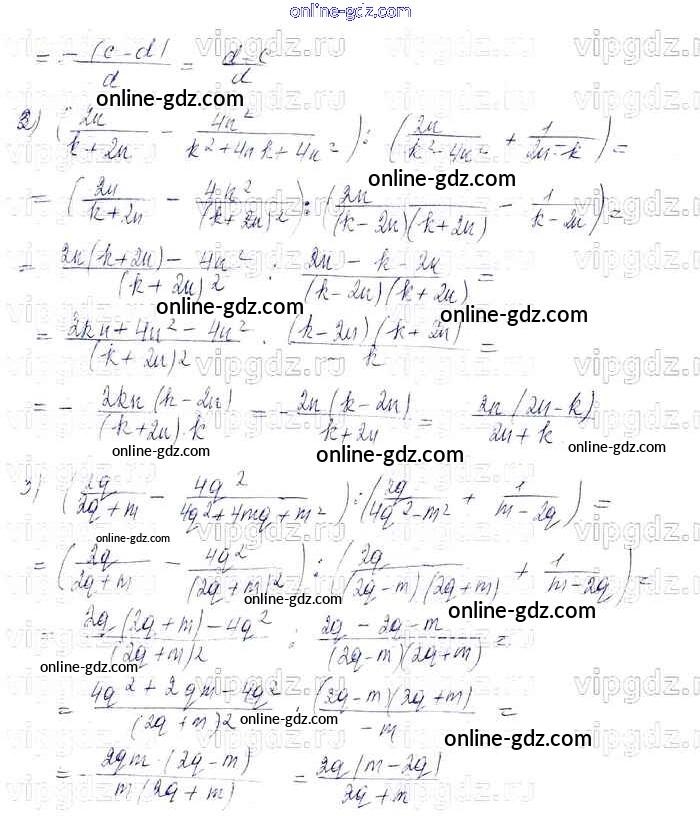 online-gdz.com
= -(c-d)/d = (d-c)/d
online-gdz.com
2) (2n/(k+2n) - 4n²/(k²+4nk+4n²)) : (2n/(k²-4n²) + 1/(2n-k)) =
online-gdz.com
= (2n/(k+2n) - 4n²/(k+2n)²) : (2n/((k-2n)(k+2n)) - 1/(k-2n)) =
= (2n(k+2n) - 4n²)/(k+2n)2 : (2n-k-2n)/((k-2n)(k+2n)) =
online-gdz.com online-gdz.com
= (2kn+4n²-4n²)/(k+2n)2 · ((k-2n)(k+2n))/k =
online-gdz.com
= - 2kn(k-2n)/((k+2n)k) = - 2n(k-2n)/(k+2n) = 2n(2n-k)/(2n+k)
online-gdz.com online-gdz.com online-gdz.com
3) (2q/(2q+m) - 4q²/(4q²+4mq+m²)) : (2q/(4q²-m²) + 1/(m-2q)) =
online-gdz.com
= (2q/(2q+m) - 4q²/(2q+m)2) : (2q/((2q-m)(2q+m)) + 1/(m-2q)) =
online-gdz.com online-gdz.com
= (2q(2q+m)-4q²)/(2q+m)2 : (2q-2q-m)/((2q-m)(2q+m)) =
online-gdz.com
= (4q²+2qm-4q²)/(2q+m)2 · ((2q-m)(2q+m))/-m =
online-gdz.com online-gdz.com
= - 2qm·(2q-m)/(m(2q+m)) = 2q(m-2q)/(2q+m)